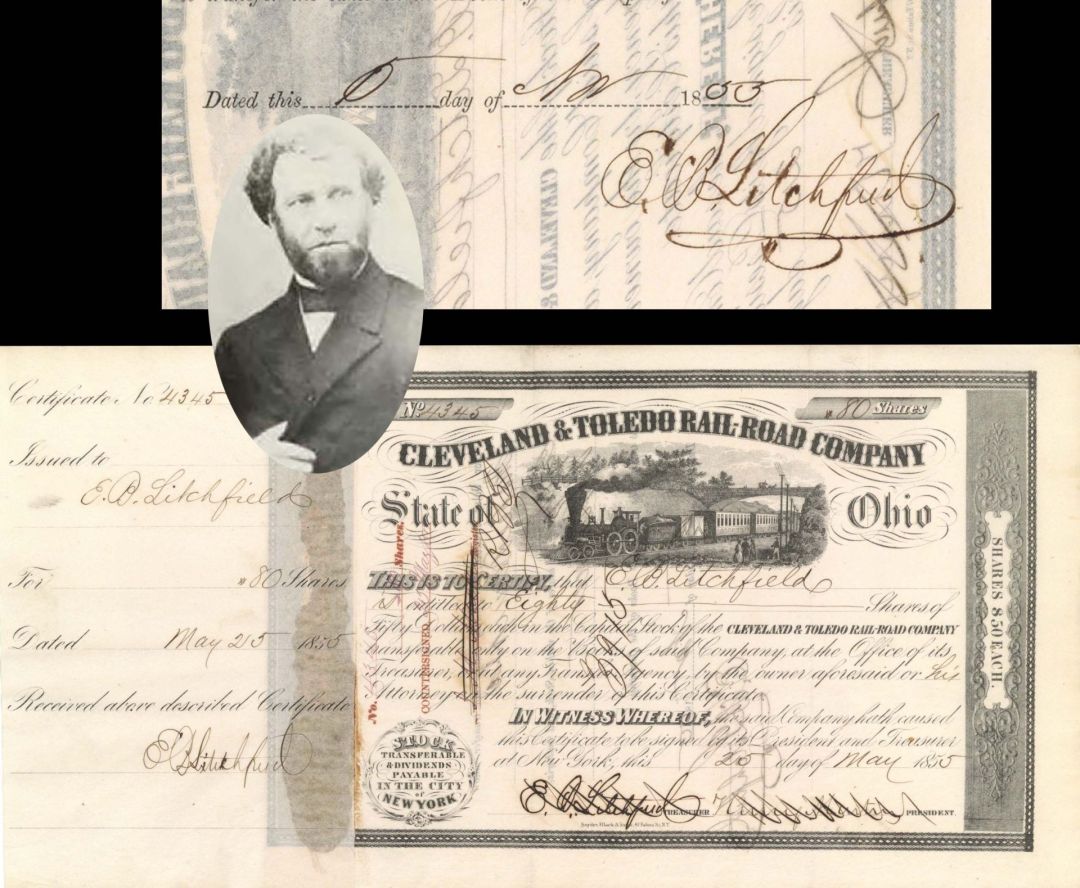 Dated this 6 day of Nov 1855
E. B. Litchfield
Certificate No 4345
Issued to
E. B. Litchfield
For 80 Shares
Dated May 25 1855
Received above described Certificate
E B Litchfield
No. 4345
80 Shares
CLEVELAND & TOLEDO RAIL-ROAD COMPANY
State of Ohio
THIS IS TO CERTIFY, that E. B. Litchfield
is entitled to Eighty Shares of
Fifty Dollars each in the Capital Stock of the CLEVELAND & TOLEDO RAIL-ROAD COMPANY
transferable only on the Books of said Company, at the Office of its
Treasurer, or at any Transfer Agency, by the owner aforesaid or his
Attorney on the surrender of this Certificate
IN WITNESS WHEREOF, the said Company hath caused
this Certificate to be signed by its President and Treasurer
at New York, this 25 day of May 1855
E. B. Litchfield TREASURER PRESIDENT
SHARES $50 EACH
No. Shares.
COUNTERSIGNED
STOCK
TRANSFERABLE
& DIVIDENDS
PAYABLE
IN THE CITY
of
NEW YORK